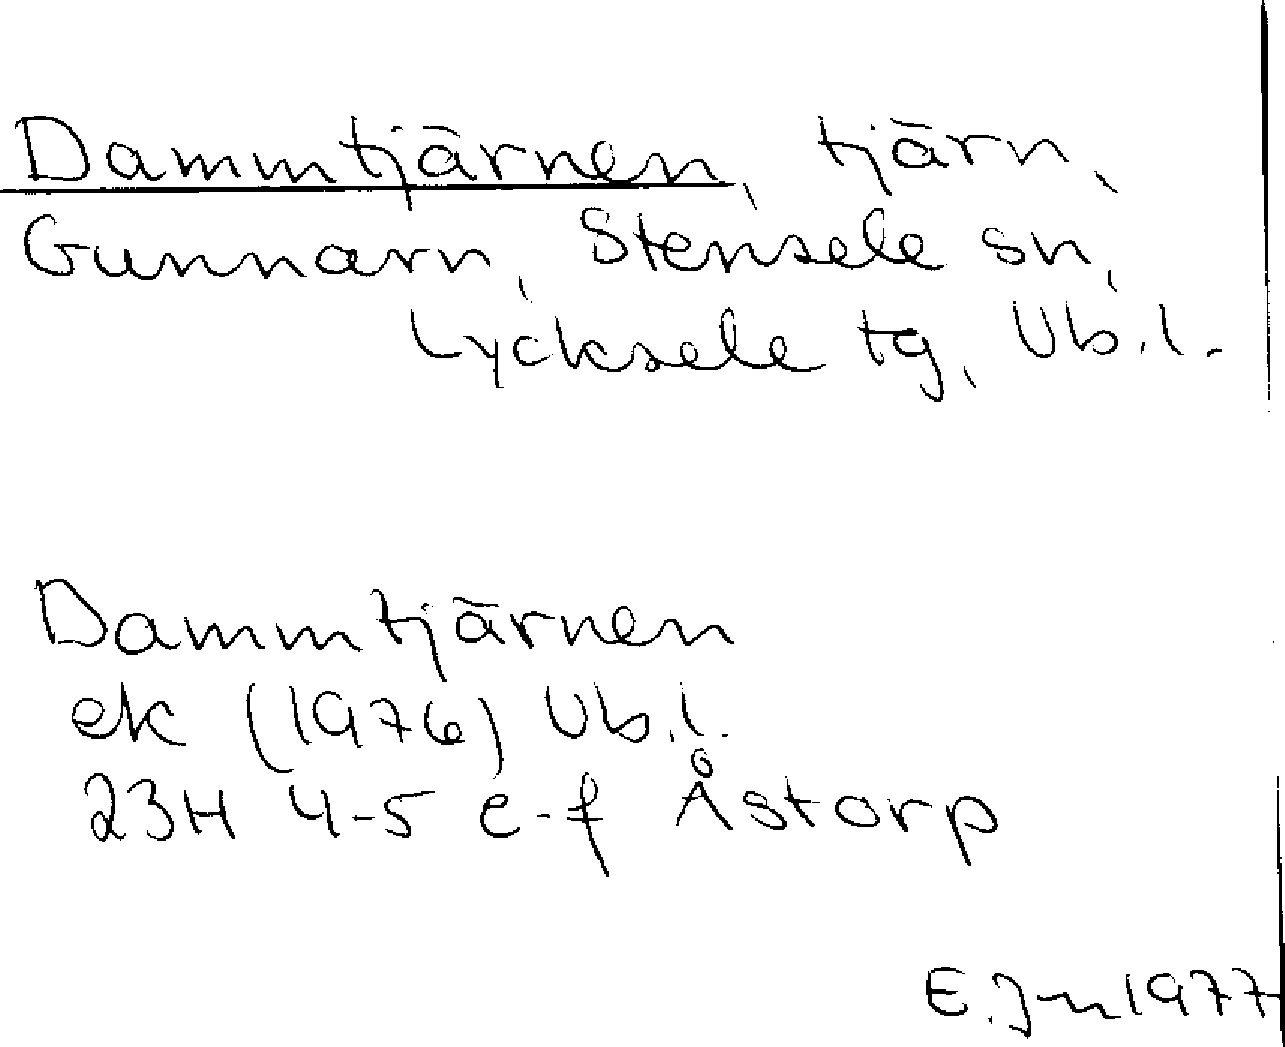 Dammtjärnen, tjärn,
Gunnarn, Stensele sn,
Lycksele tg, Vb.l.
Dammtjärnen
ek (1976) Vb.l.
23H 4-5 e-f Åstorp
E. Jn 1977